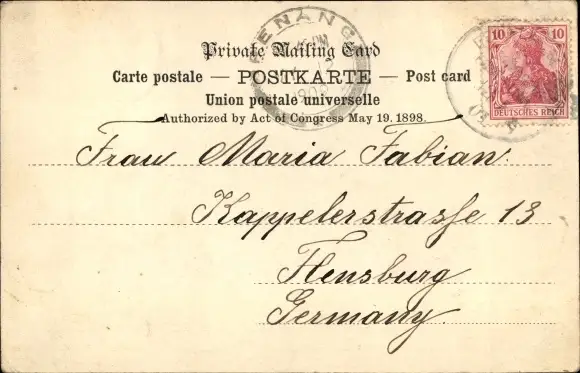 PENANG
1903
10
DEUTSCHES REICH
Private Mailing Card
Carte postale — POSTKARTE — Post card
Union postale universelle
Authorized by Act of Congress May 19. 1898.
Frau Maria Fabian.
Kappelerstrasse 13
Flensburg
Germany.